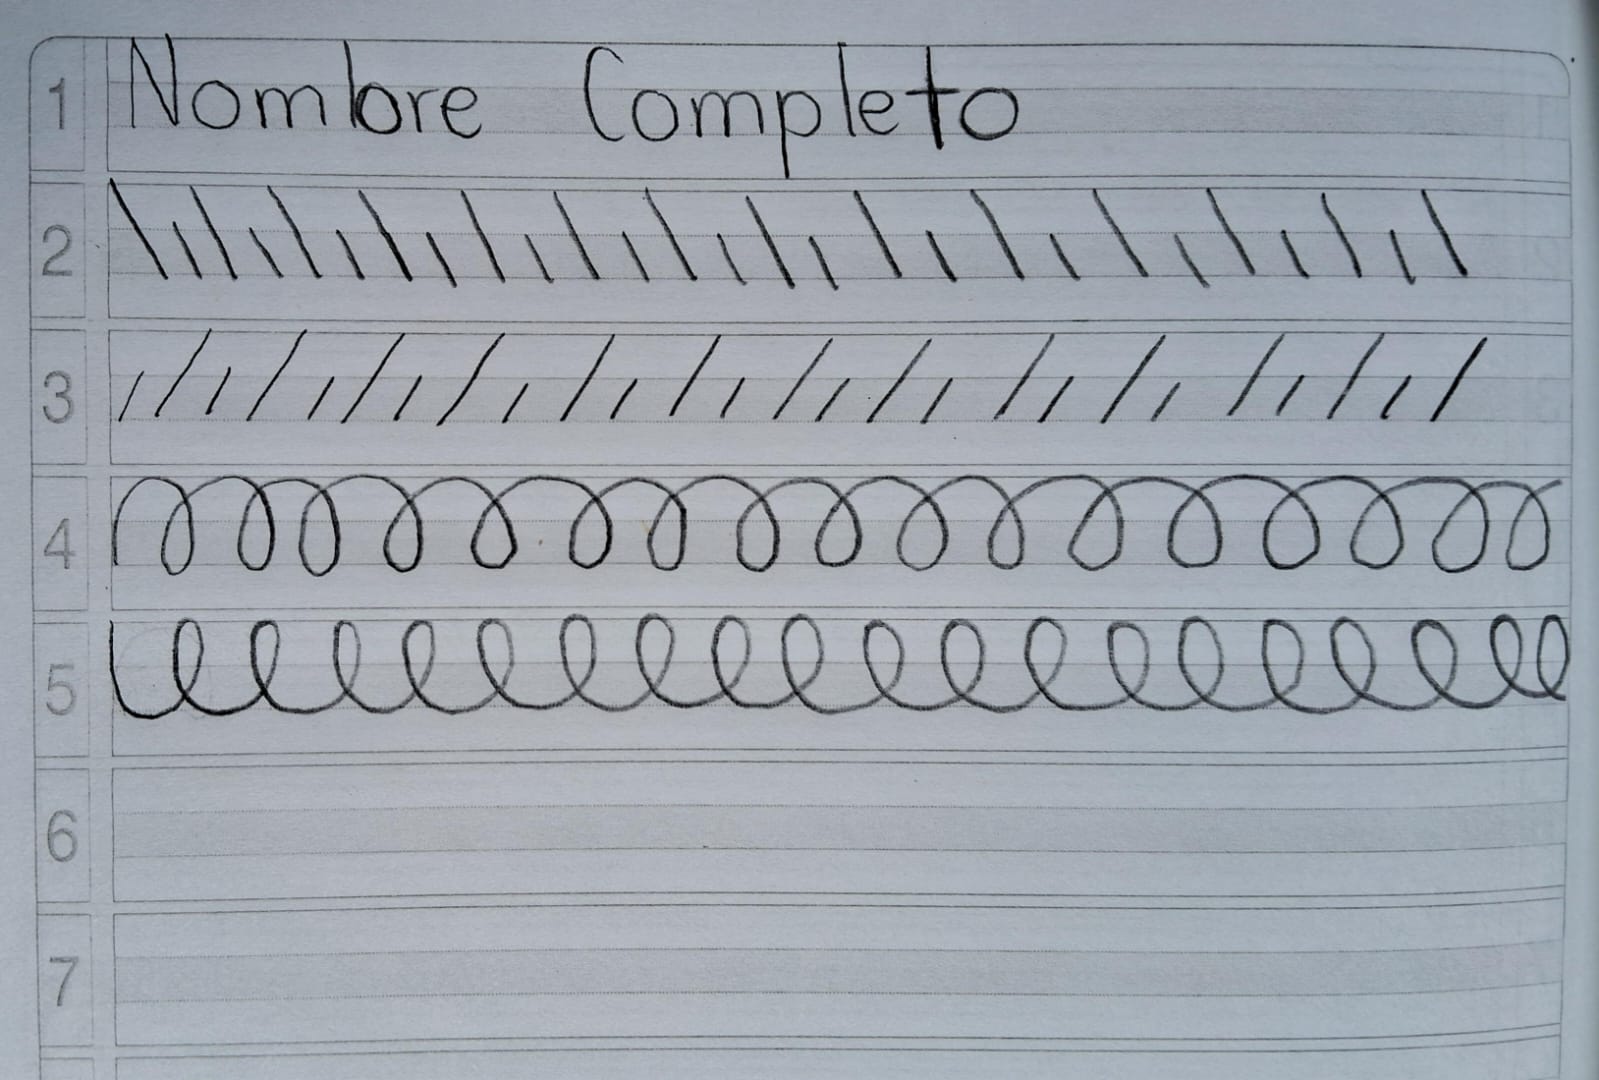 1 Nombre Completo
2
3
4
5
6
7